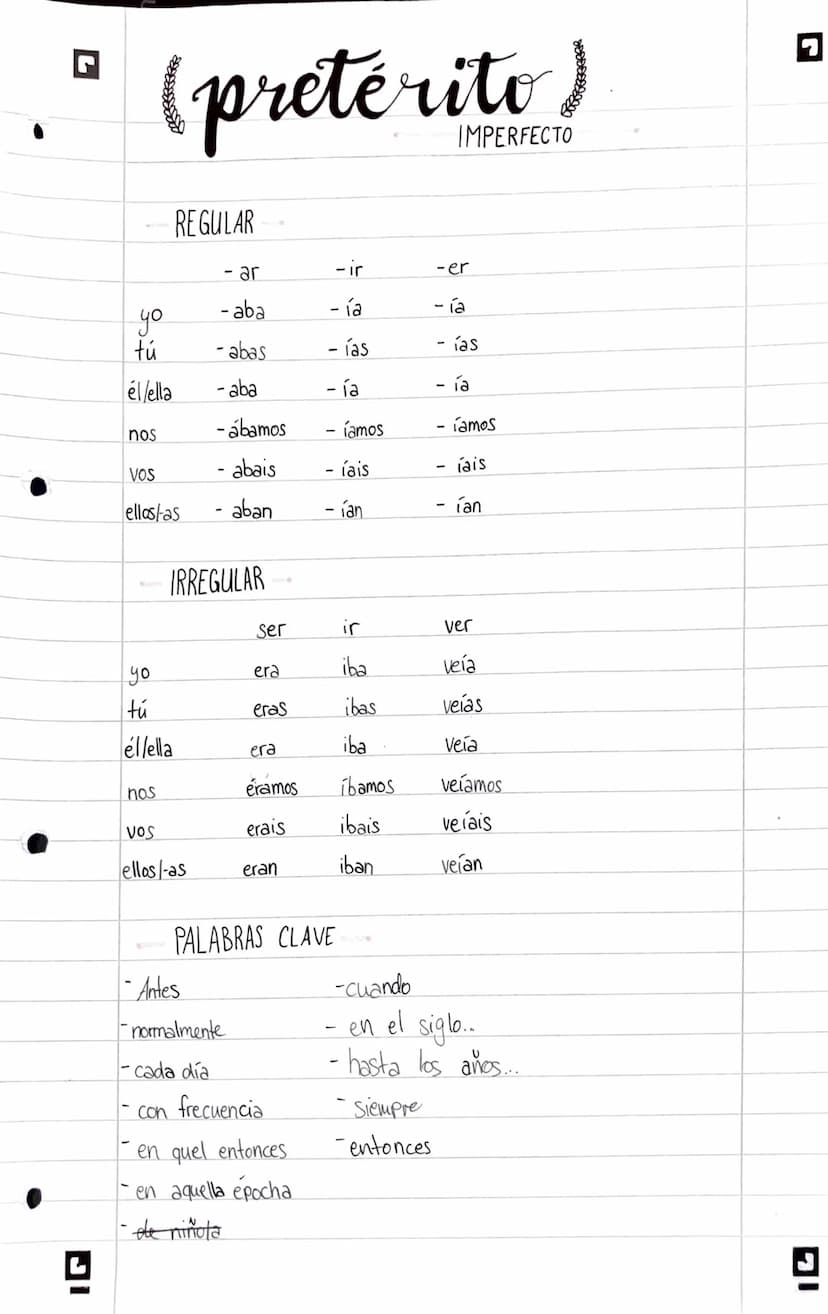 pretérito
IMPERFECTO
REGULAR
-ar -ir -er
yo -aba -ía -ía
tú -abas -ías -ías
él/ella -aba -ía -ía
nos -ábamos -íamos -íamos
vos -abais -íais -íais
ellos/-as -aban -ían -ían
IRREGULAR
ser ir ver
yo era iba veía
tú eras ibas veías
él/ella era iba veía
nos éramos íbamos veíamos
vos erais ibais veíais
ellos/-as eran iban veían
PALABRAS CLAVE
- Antes -cuando
-normalmente - en el siglo..
-cada día - hasta los años...
- con frecuencia - siempre
- en quel entonces - entonces
- en aquella épocha
- de niño/a